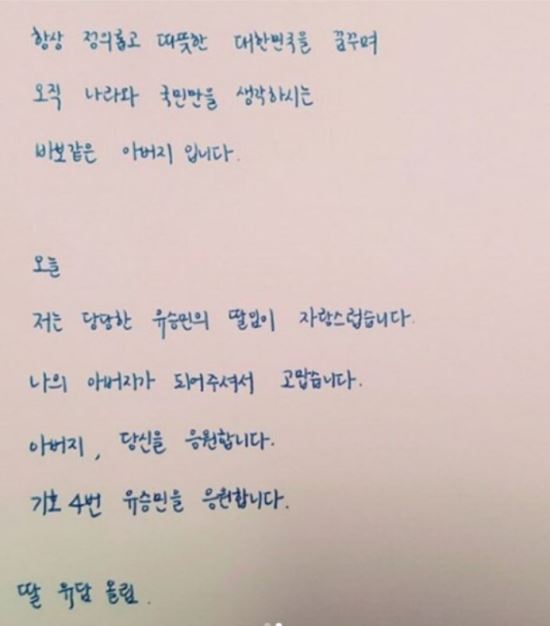 항상 정의롭고 따뜻한 대한민국을 꿈꾸며
오직 나라와 국민만을 생각하시는
바보같은 아버지 입니다.
오늘
저는 당당한 유승민의 딸임이 자랑스럽습니다.
나의 아버지가 되어주셔서 고맙습니다.
아버지, 당신을 응원합니다.
기호 4번 유승민을 응원합니다.
딸 유담 올림.